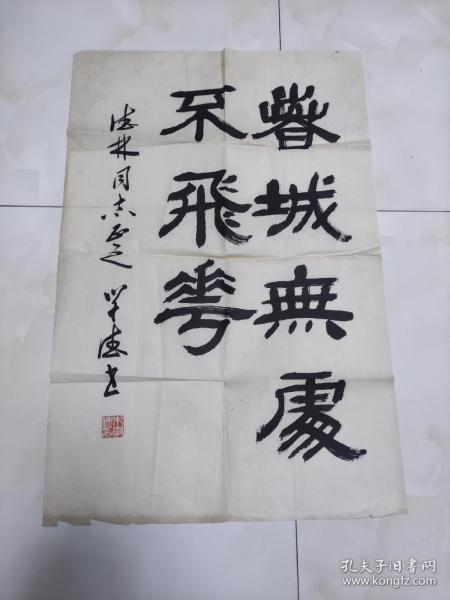 春城無處
不飛花
德林同志正之 學德書
孔夫子旧书网
www.kongfz.com